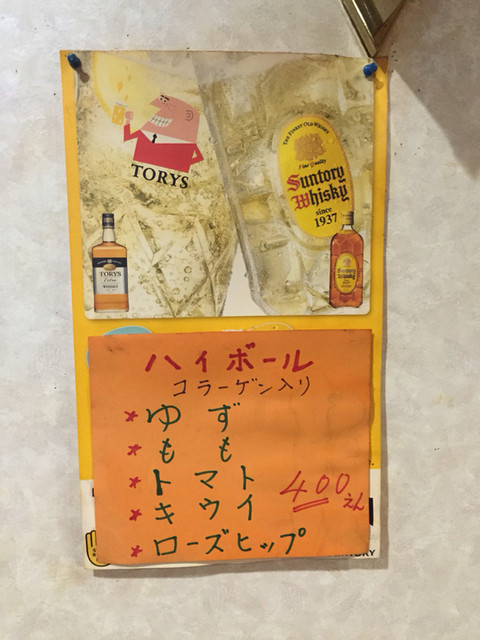 TORYS
THE FINEST OLD WHISKY
Fine Quality
Suntory
Whisky
since
1937
TORYS
Extra
WHISKY
Suntory
Whisky
ハイボール
コラーゲン入り
*ゆず
*もも
*トマト
*キウイ
400えん
*ローズヒップ